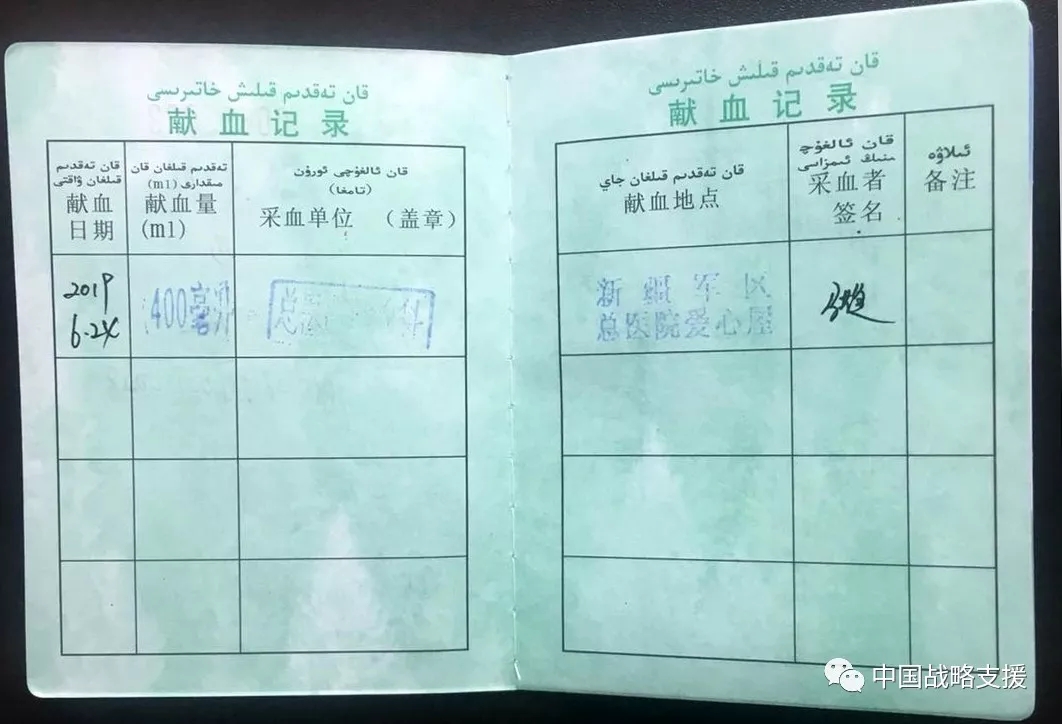 قان تەقدىم قىلىش خاتىرىسى
献血记录
قان تەقدىم
قىلغان ۋاقتى
献血
日期
تەقدىم قىلغان قان
مىقدارى (m1)
献血量
(m1)
قان ئالغۇچى ئورۇن
(تامغا)
采血单位 （盖章）
2019
6.24
400毫升
قان تەقدىم قىلىش خاتىرىسى
献血记录
قان تەقدىم قىلغان جاي
献血地点
قان ئالغۇچى
نىڭ ئىمزاسى
采血者
签名
ئىلاۋە
备注
新疆军区
总医院爱心屋
中国战略支援